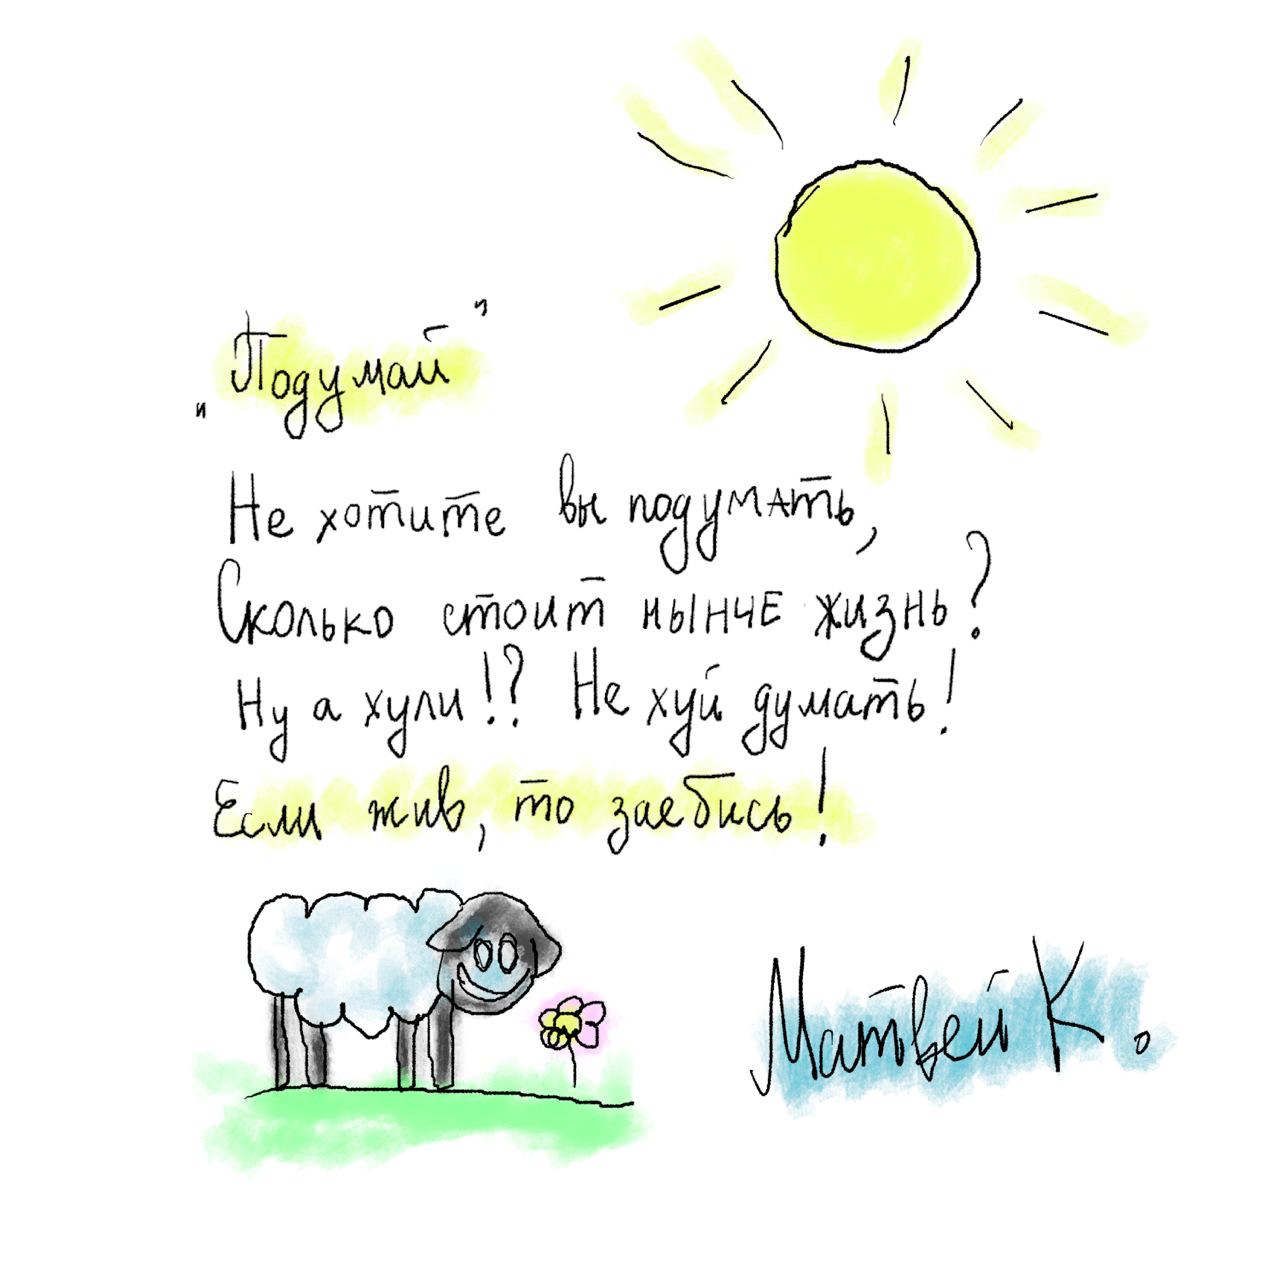 „Подумай"
Не хотите вы подумать,
Сколько стоит нынче жизнь?
Ну а хули!? Не хуй думать!
Если жив, то заебись!
Матвей К.